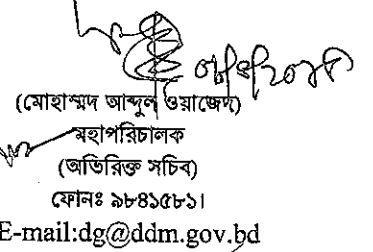 (মোহাম্মদ আব্দুল ওয়াজেদ)
মহাপরিচালক
(অতিরিক্ত সচিব)
ফোনঃ ৯৮৪১৫৮১।
E-mail:dg@ddm.gov.bd